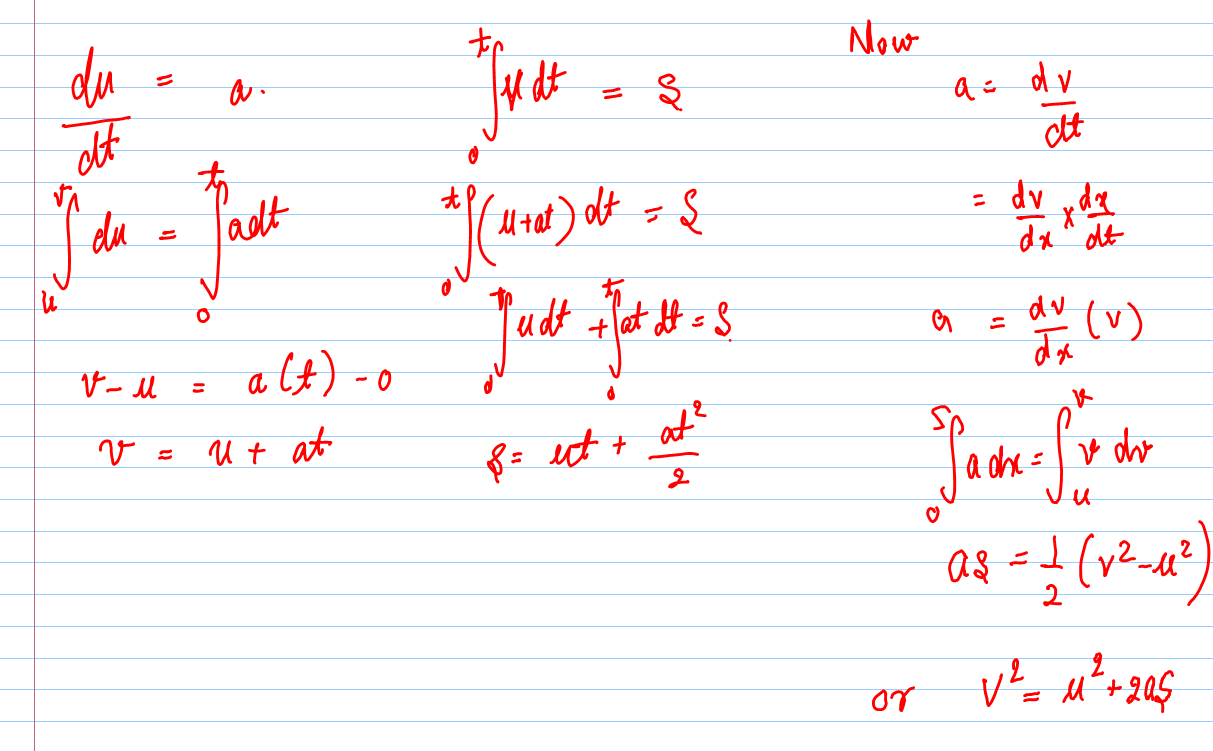 du/dt = a.
∫_u^v du = ∫_0^t adt
v-u = a(t) - 0
v = u + at
∫_0^t u dt = S
∫_0^t (u+at) dt = S
∫_0^t u dt + ∫_0^t at dt = S
S = ut + at²/2
Now
a = dv/dt
= dv/dx × dx/dt
a = dv/dx (v)
∫_0^S a dx = ∫_u^v v dv
aS = 1/2 (v²-u²)
or v² = u² + 2aS